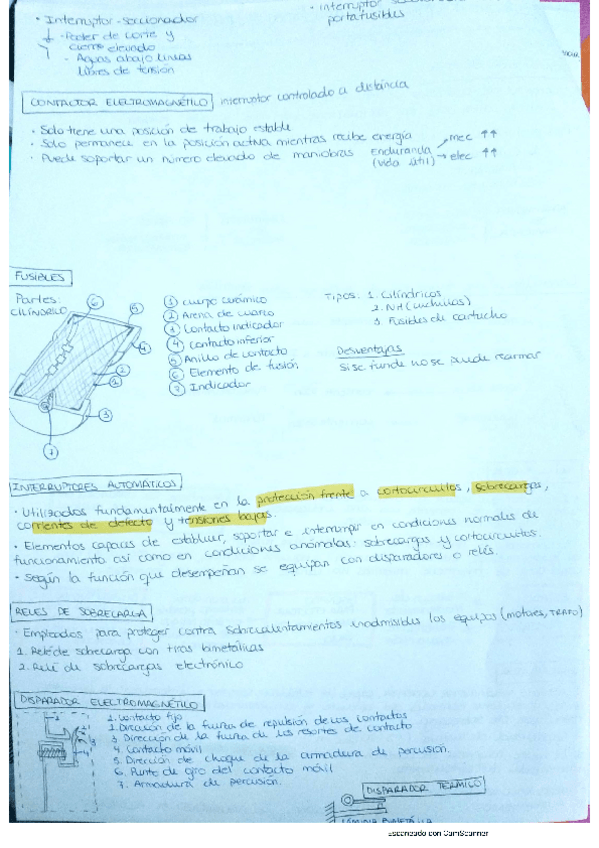 · Interruptor-seccionador
- Poder de corte y
cierre elevado
- Aguas abajo líneas
libres de tensión
· Interruptor
portafusibles
CONTACTOR ELECTROMAGNÉTICO interruptor controlado a distancia
· Solo tiene una posición de trabajo estable
· Solo permanece en la posición activa mientras recibe energía
· Puede soportar un número elevado de maniobras Enduranda mec ↑↑
(vida útil) → elec ↑↑
FUSIBLES
Partes:
CILÍNDRICO
1 cuerpo cerámico
2 Arena de cuarzo
3 Contacto indicador
4 Contacto inferior
5 Anillo de contacto
6 Elemento de fusión
7 Indicador
Tipos: 1. Cilíndricos
2. NH (cuchillas)
3. Fusibles de cartucho
Desventajas
si se funde no se puede rearmar
6
5
4
2
1
3
7
INTERRUPTORES AUTOMÁTICOS
· Utilizados fundamentalmente en la protección frente a cortocircuitos, sobrecargas,
corrientes de defecto y tensiones bajas.
· Elementos capaces de establecer, soportar e interrumpir en condiciones normales de
funcionamiento así como en condiciones anómalas: sobrecargas y cortocircuitos.
· Según la función que desempeñan se equipan con disparadores o relés.
RELES DE SOBRECARGA
· Empleados para proteger contra sobrecalentamientos inadmisibles los equipos (motores, TRAFO)
1. Relé de sobrecarga con tiras bimetálicas
2. Relé de sobrecargas electrónico
DISPARADOR ELECTROMAGNÉTICO
1. Contacto fijo
2. Dirección de la fuerza de repulsión de los contactos
3. Dirección de la fuerza de los resortes de contacto
4. Contacto móvil
5. Dirección de choque de la armadura de percusión.
6. Punto de giro del contacto móvil
7. Armadura de percusión.
DISPARADOR TÉRMICO
LÁMINA BIMETÁLICA
Escaneado con CamScanner